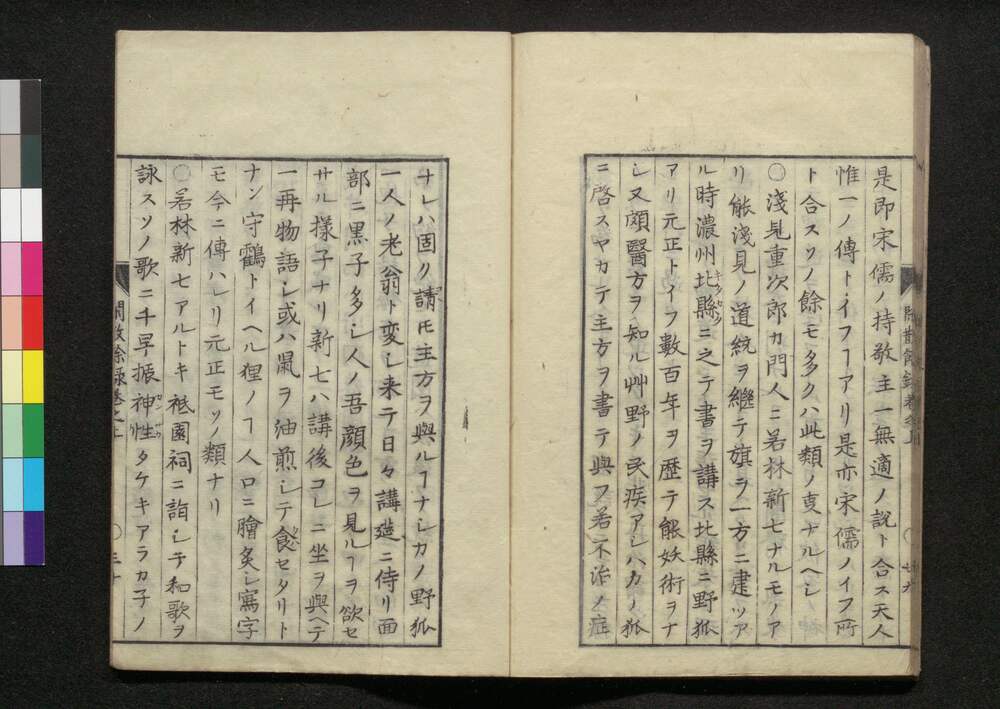 是即宋儒ノ持敬主一無適ノ説ト合ス天人
惟一ノ傳トイフヿアリ是亦宋儒ノイフ所
ト合スソノ餘モ多クハ此類ノ叓ナルヘシ
〇淺見重次郎カ門人ニ若林新七ナルモノア
リ能淺見ノ道統ヲ継テ旗ヲ一方ニ建ツア
ル時濃州北縣ニ之テ書ヲ講ス北縣ニ野狐
アリ元正トイフ數百年ヲ歴テ能妖術ヲナ
シ又頗醫方ヲ知ル艸野ノ民疾アレハカノ狐
ニ啓スヤカテ主方ヲ書テ與フ若不治ノ症
ナレハ固ク請𪜈主方ヲ與ルヿナシカノ野狐
一人ノ老翁ト変シ来テ日々講筵ニ侍リ面
部ニ黒子多シ人ノ吾顔色ヲ見ルヿヲ欲セ
サル様子ナリ新七ハ講後コレニ坐ヲ與ヘテ
一再物語シ或ハ鼠ヲ油煎シテ食セタリト
ナン守鶴トイヘル狸ノヿ人口ニ膾炙シ寫字
モ今ニ傳ハレリ元正モソノ類ナリ
〇若林新七アルトキ祗園祠ニ詣シテ和歌ヲ
詠スソノ歌ニ千早振神性タケキアラカ子ノ
閒散餘録巻之上
〇三十